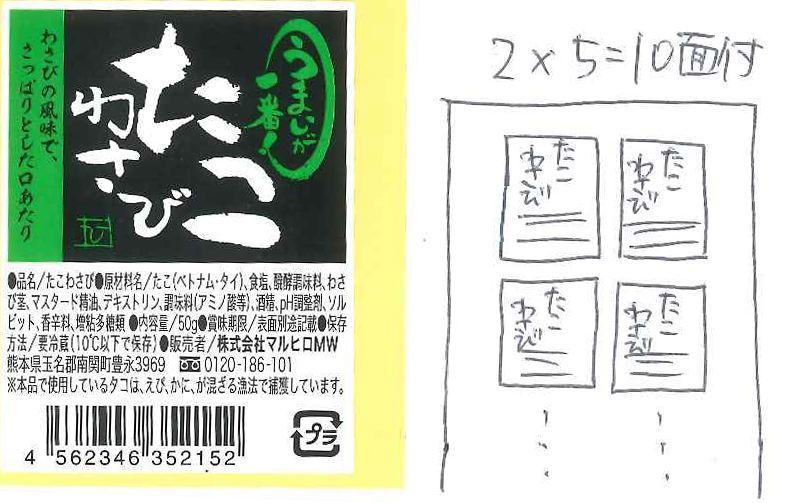 うまいが
一番!
たこ
わさび
わさびの風味で、
さっぱりとした口あたり
●品名/たこわさび●原材料名/たこ(ベトナム・タイ)、食塩、醗酵調味料、わさ
び茎、マスタード精油、デキストリン、調味料(アミノ酸等)、酒精、pH調整剤、ソル
ビット、香辛料、増粘多糖類 ●内容量/50g●賞味期限/表面別途記載●保存
方法/要冷蔵(10℃以下で保存)●販売者/株式会社マルヒロMW
熊本県玉名郡南関町豊永3969 0120-186-101
※本品で使用しているタコは、えび、かに、が混ざる漁法で捕獲しています。
プラ
4 562346 352152
2×5=10面付
たこ
わさび
たこ
わさび
たこ
わさび
たこ
わさび